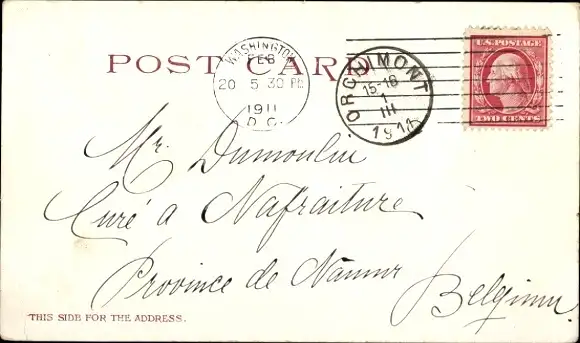 POST CARD
WASHINGTON
FEB
20 5 30 PM
1911
D.C.
ORCHIMONT
15-16
1
III
1911
U.S. POSTAGE
TWO CENTS
Mr. Dumoulin
Curé a Nafraiture
Province de Namur
Belgium.
THIS SIDE FOR THE ADDRESS.